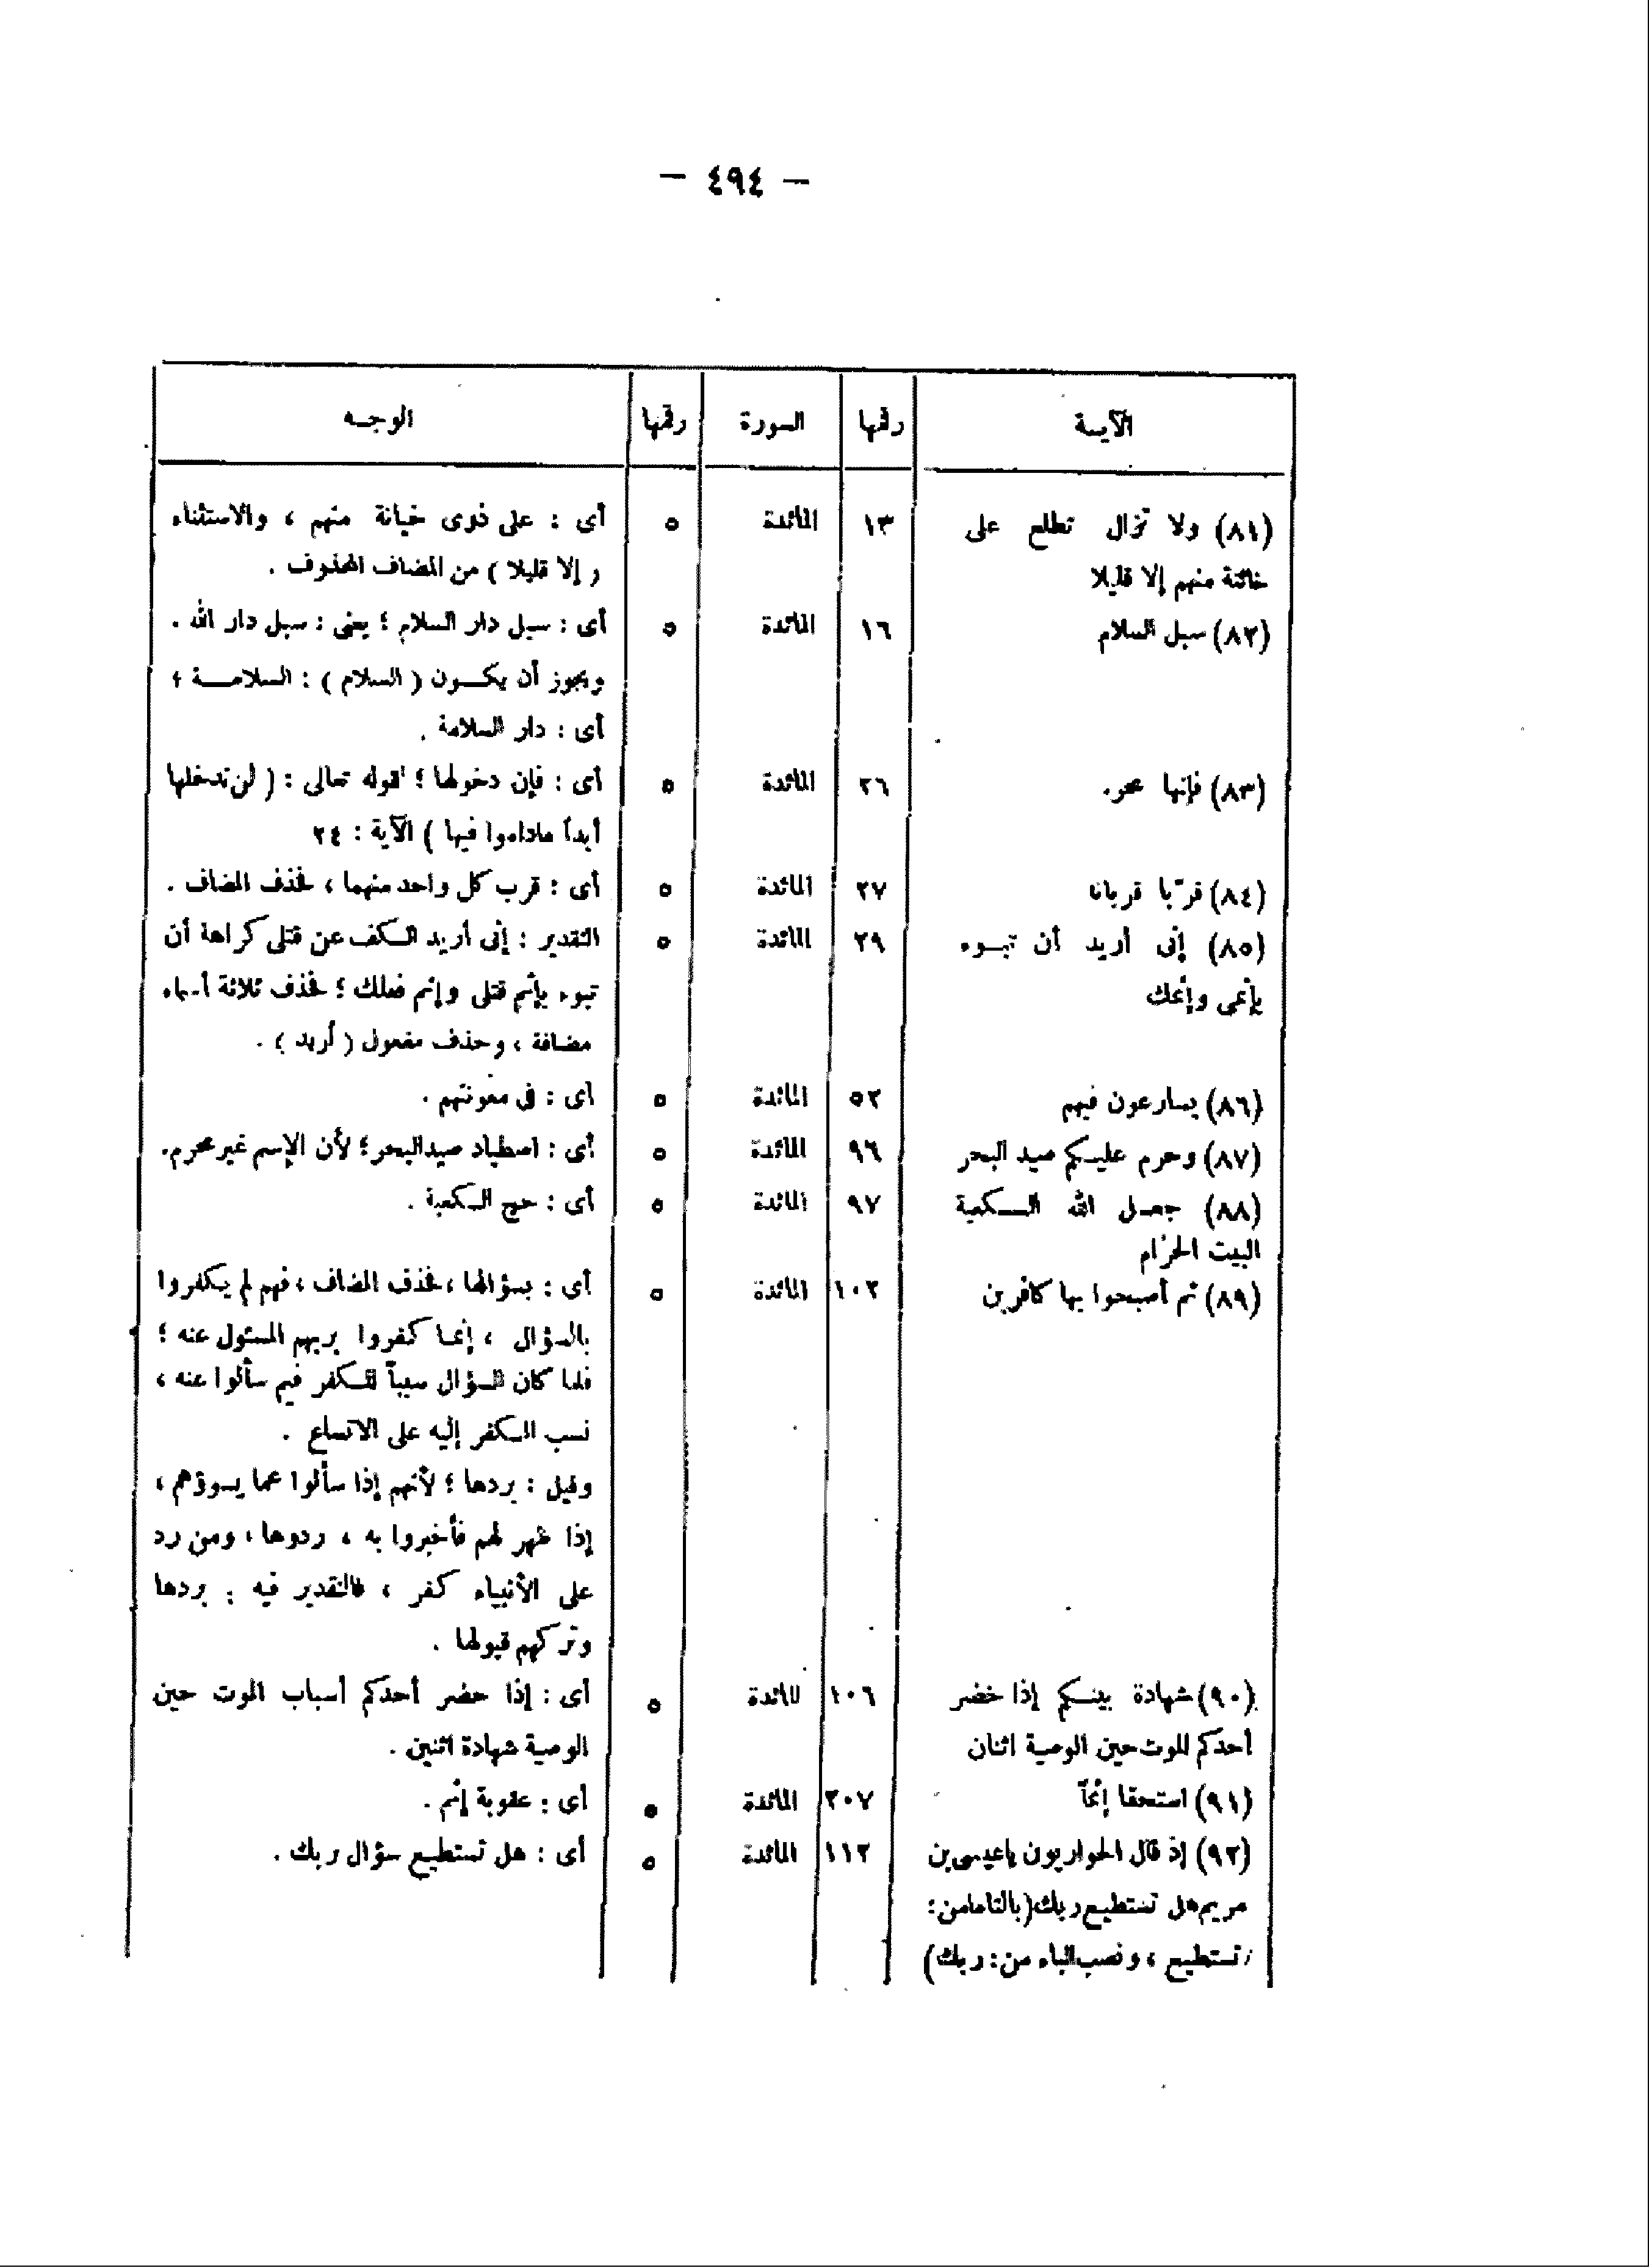 — ٤٩٤ —
الآيـة رقمها السورة رقمها الوجـه
(٨١) ولا تزال تطلع على ١٣ المائدة ٥ أى : على ذوى خيانة منهم ، والاستثناء
خائنة منهم إلا قليلا ( إلا قليلا ) من المضاف المحذوف .
(٨٢) سبل السلام ١٦ المائدة ٥ أى : سبل دار السلام ؛ يعنى : سبل دار الله .
ويجوز أن يكـون ( السلام ) : السلامـة ؛
أى : دار السلامة .
(٨٣) فإنها محر. ٢٦ المائدة ٥ أى : فإن دخولها ؛ لقوله تعالى : ( لن ندخلها
أبداً ماداموا فيها ) الآية : ٢٤
(٨٤) قرّبا قربانا ٢٧ المائدة ٥ أى : قرب كل واحد منهما ، فحذف المضاف .
(٨٥) إنى أريد أن تبـوء ٢٩ المائدة ٥ التقدير : إنى أريد الكف عن قتلى كراهة أن
بإثمى وإثمك تبوء بإثم قتلى وإثم فعلك ؛ فحذف ثلاثة أسماء
مضافة ، وحذف مفعول ( أريد ) .
(٨٦) يسارعون فيهم ٥٢ المائدة ٥ أى : فى معونتهم .
(٨٧) وحرم عليـكم صيد البحر ٩٦ المائدة ٥ أى : اصطياد صيد البحر ؛ لأن الإسم غير محرم.
(٨٨) جعـل الله الـكعبة ٩٧ المائدة ٥ أى : حج الـكعبة .
البيت الحرام
(٨٩) ثم أصبحوا بها كافرين ١٠٢ المائدة ٥ أى : بسؤالها ، فحذف المضاف ، فهم لم يكفروا
بالسؤال ، إنما كفروا بربهم المسئول عنه ؛
فلما كان السؤال سبباً للـكفر فيم سألوا عنه ،
نسب الـكفر إليه على الاتساع .
وقيل : بردها ؛ لأنهم إذا سألوا عما يسوؤهم ،
إذا ظهر لهم فأخبروا به ، ردوها ، ومن رد
على الأنبياء كفر ، فالتقدير فيه : بردها
وتركهم قبولها .
(٩٠) شهادة بينـكم إذا خضر ١٠٦ المائدة ٥ أى : إذا حضر أحدكم أسباب الموت حين
أحدكم الموت حين الوصية اثنان الوصية شهادة اثنين .
(٩١) استحقا إثماً ٢٠٧ المائدة ٥ أى : عقوبة إثم .
(٩٢) إذ قال الحواريون ياعيسى بن ١١٢ المائدة ٥ أى : هل تستطيع سؤال ربك .
مريم هل تستطيع ربك (بالتاء من :
تستطيع ، ونصب الباء من : ربك )